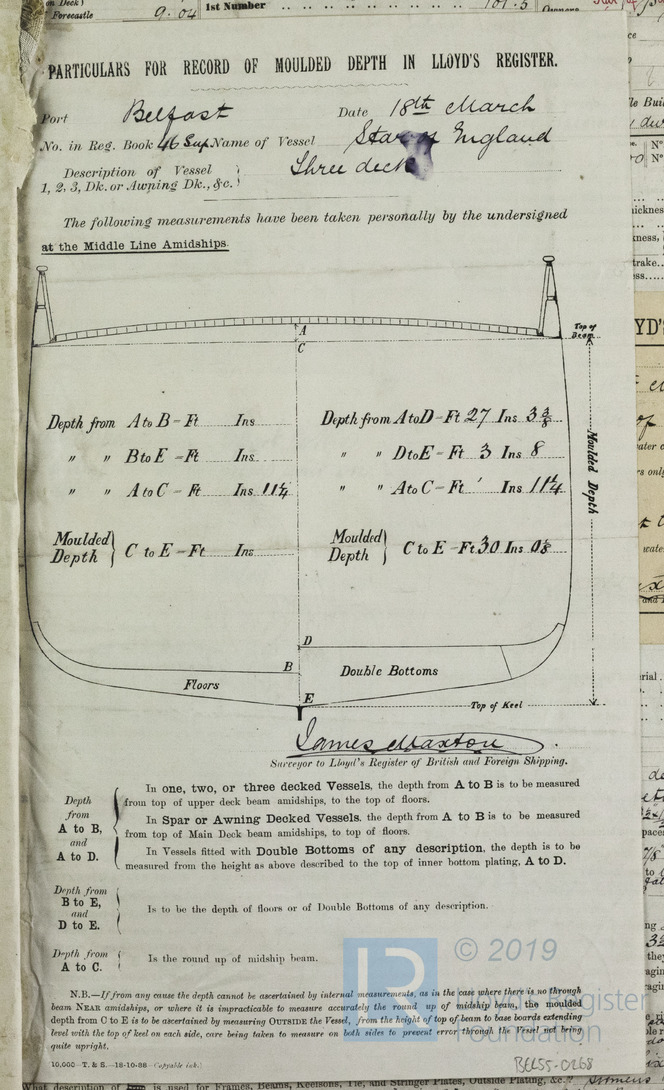 on Deck)
Forecastle 9.04 1st Number
PARTICULARS FOR RECORD OF MOULDED DEPTH IN LLOYD'S REGISTER.
Port Belfast Date 18th March
No. in Reg. Book 46 Sup Name of Vessel Star of England
Description of Vessel
1, 2, 3, Dk. or Awning Dk., &c. Three deck
The following measurements have been taken personally by the undersigned
at the Middle Line Amidships.
A
C
Top of
Beam
Depth from A to B - Ft Ins
" " B to E - Ft Ins
" " A to C - Ft Ins 11¼
Moulded
Depth } C to E - Ft Ins
Depth from A to D - Ft 27 Ins 3⅜
" " D to E - Ft 3 Ins 8
" " A to C - Ft ' Ins 11¼
Moulded
Depth } C to E - Ft 30 Ins 0⅛
Moulded Depth
D
B
Floors
Double Bottoms
E
Top of Keel
James Maxton
Surveyor to Lloyd's Register of British and Foreign Shipping.
Depth
from
A to B,
and
A to D.
In one, two, or three decked Vessels, the depth from A to B is to be measured
from top of upper deck beam amidships, to the top of floors.
In Spar or Awning Decked Vessels, the depth from A to B is to be measured
from top of Main Deck beam amidships, to top of floors.
In Vessels fitted with Double Bottoms of any description, the depth is to be
measured from the height as above described to the top of inner bottom plating, A to D.
Depth from
B to E,
and
D to E.
Is to be the depth of floors or of Double Bottoms of any description.
Depth from
A to C.
Is the round up of midship beam.
N.B.—If from any cause the depth cannot be ascertained by internal measurements, as in the case where there is no through
beam NEAR amidships, or where it is impracticable to measure accurately the round up of midship beam, the moulded
depth from C to E is to be ascertained by measuring OUTSIDE the Vessel, from the height of top of beam to base boards extending
level with the top of keel on each side, care being taken to measure on both sides to prevent error through the Vessel not being
quite upright.
10,000—T. & S.—18-10-88—(Copyable ink.)
© 2019
LR
Register
Foundation
BEL55-0268
What description of is used for Frames, Beams, Keelsons, Tie, and Stringer Plates, Outside Plating, &c.?